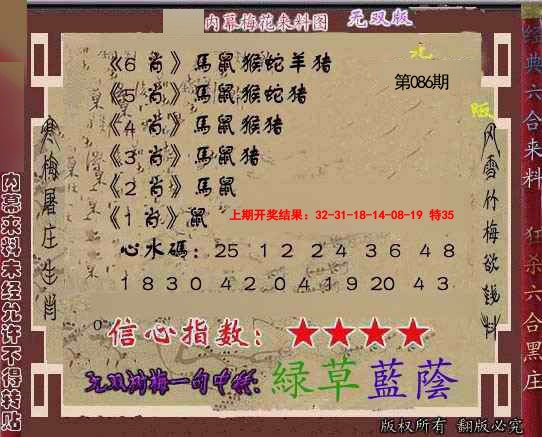 内幕梅花来料图 无双版
第086期
《6 肖》馬鼠猴蛇羊猪
《5 肖》馬鼠猴蛇猪
《4 肖》馬鼠猴猪
《3 肖》馬鼠猪
《2 肖》馬鼠
《1 肖》鼠
上期开奖结果：32-31-18-14-08-19 特35
心水碼：25 12 24 36 48
18 30 42 04 19 20 43
信心指数：★★★★
无双浏梅一句中特：綠草藍蔭
寒梅屠庄生肖
风雪竹梅欲钱料
内幕来料未经允许不得转贴
经典六合来料 狂杀六合黑庄
版权所有 翻版必究